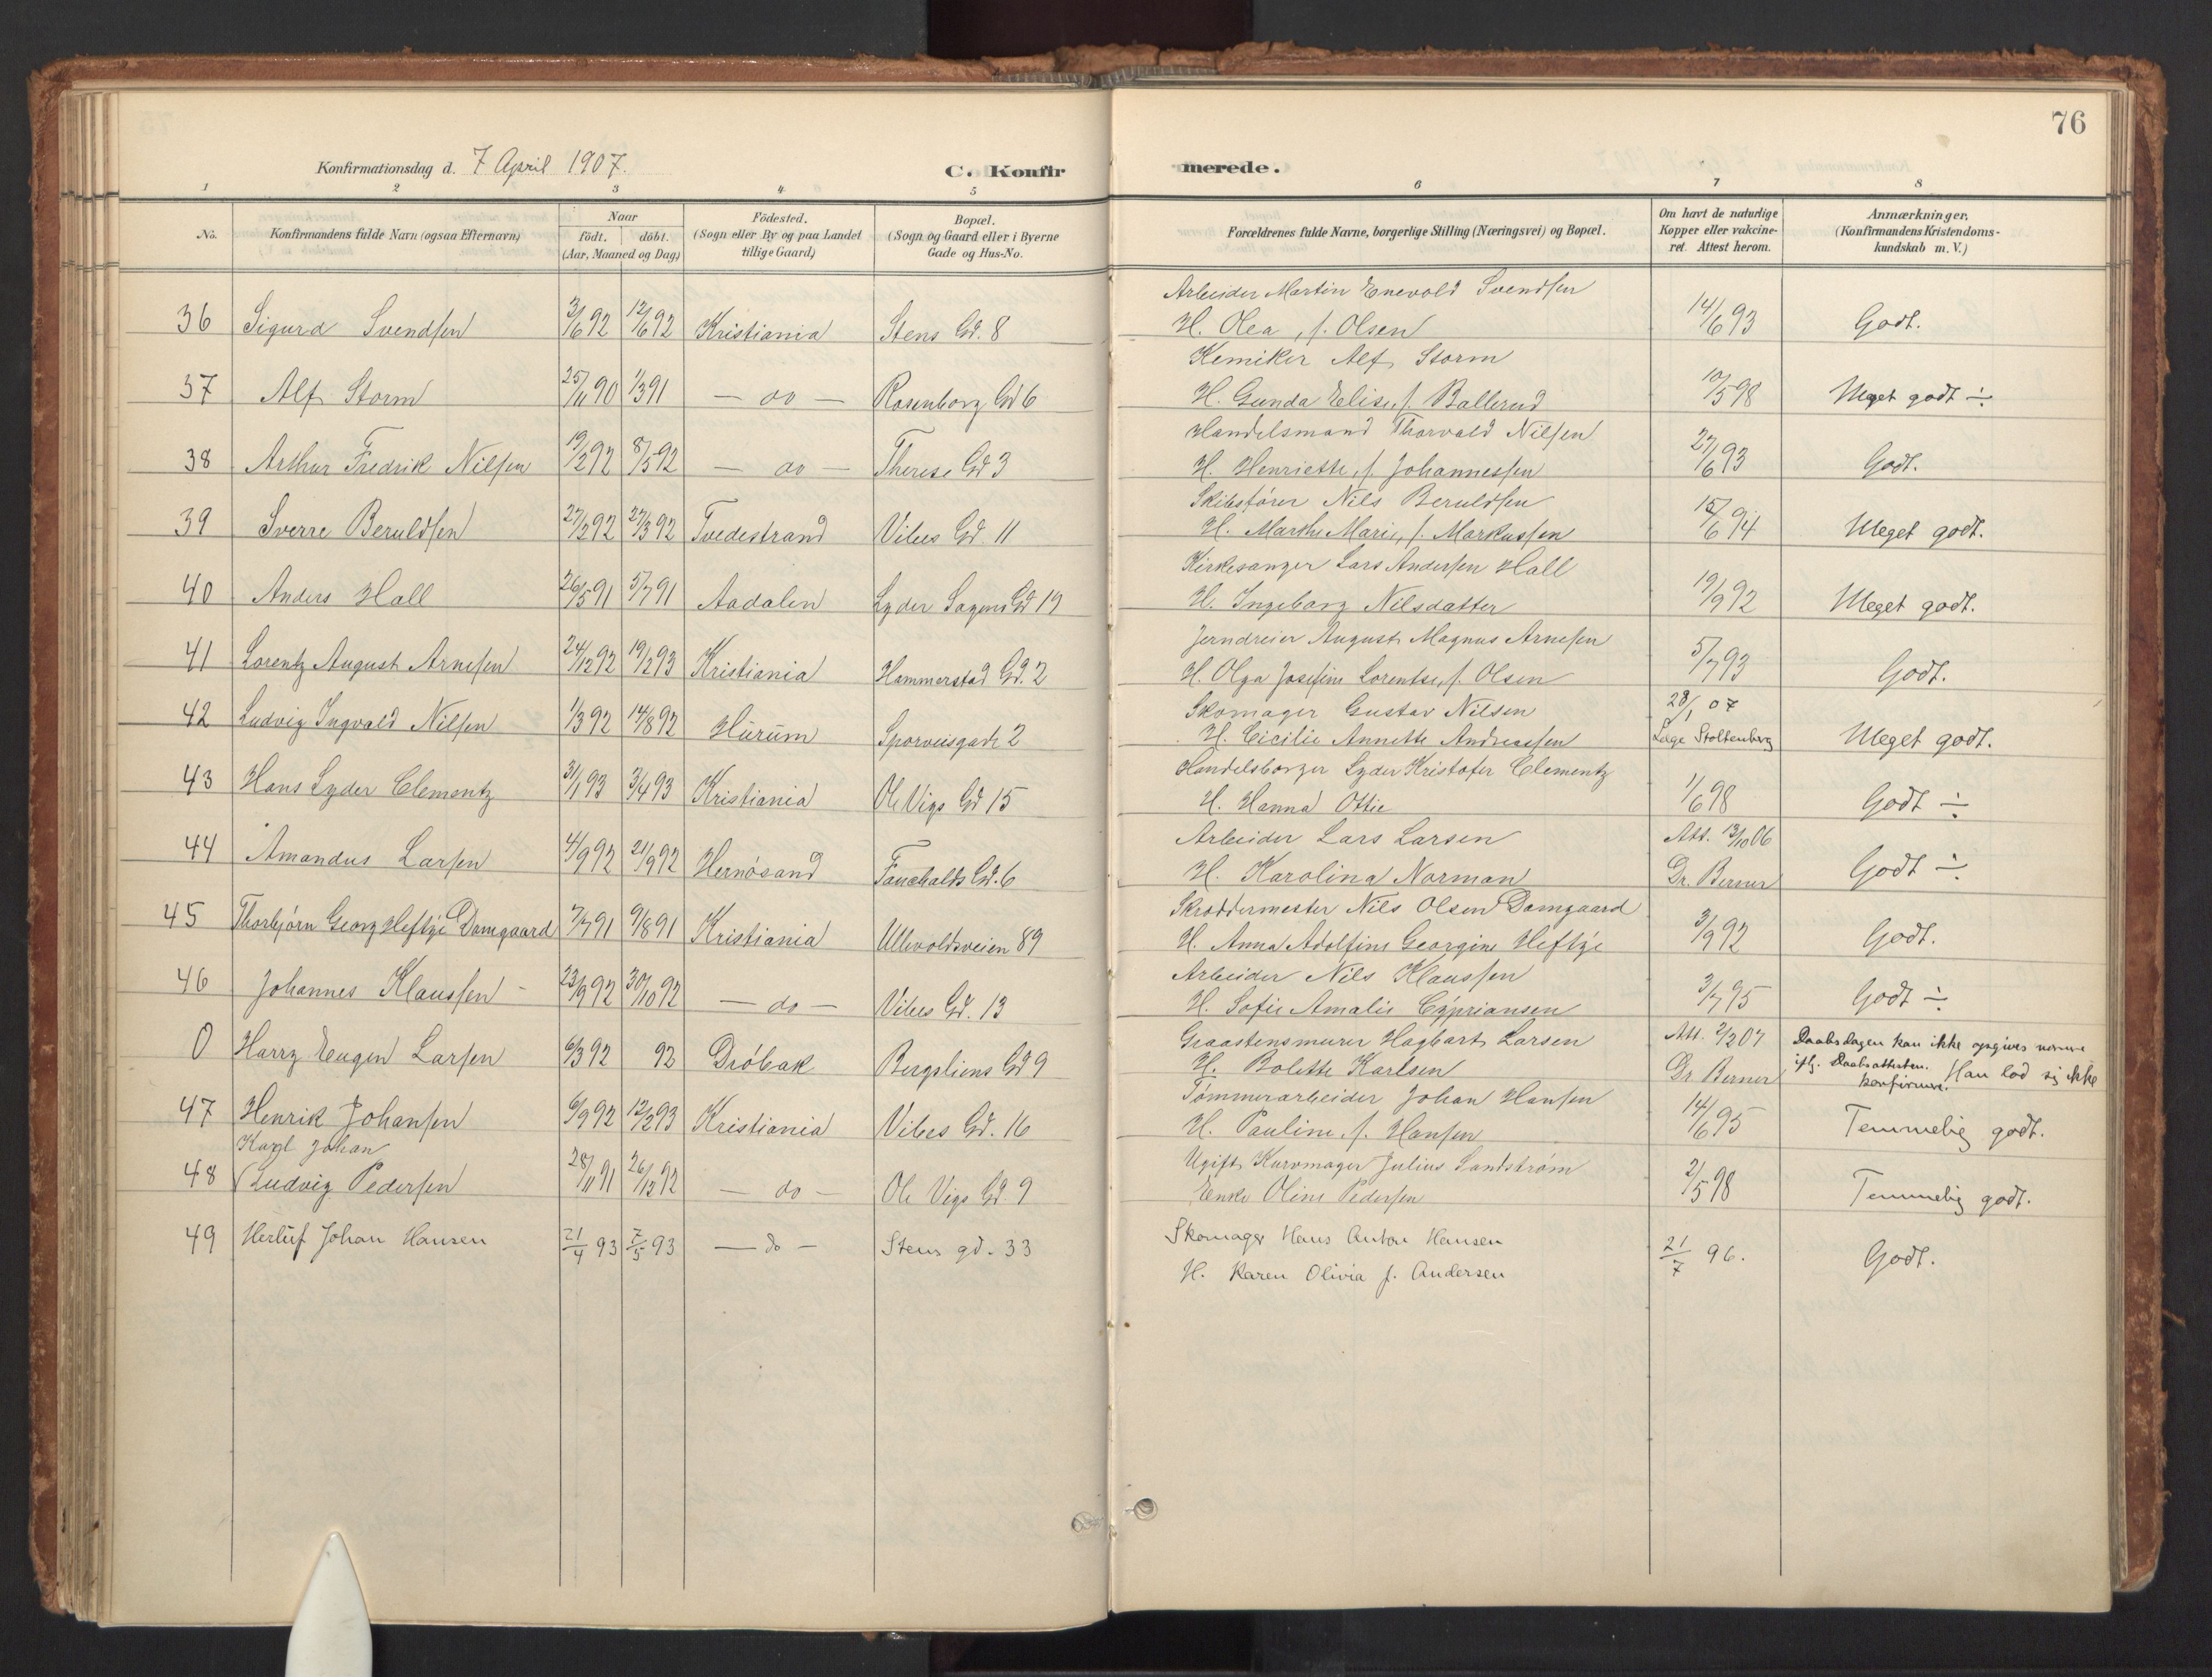 76
Konfirmationsdag d. 7 April 1907.
C. Konfirmerede.
1 2 3 4 5 6 7 8
No.
Konfirmandens fulde Navn (ogsaa Efternavn)
Naar
födt. döbt.
(Aar, Maaned og Dag)
Födested.
(Sogn eller By og paa Landet
tillige Gaard)
Bopæl.
(Sogn og Gaard eller i Byerne
Gade og Hus-No.
Forældrenes fulde Navne, borgerlige Stilling (Næringsvei) og Bopæl.
Om havt de naturlige
Kopper eller vakcine-
ret. Attest herom.
Anmærkninger.
(Konfirmandens Kristendoms-
kundskab m. V.)
Arbeider Martin Enevold Svendsen
36 Sigurd Svendsen 3/6 92 12/6 92 Kristiania Stens Gd. 8 H. Olea, f. Olsen 14/6 93 Godt.
Kemiker Alf Storm
37 Alf Storm 25/11 90 1/3 91 — do — Rosenborg Gd 6 H. Gunda Elise, f. Ballerud 10/5 98 Meget godt ÷
Handelsmand Thorvald Nilsen
38 Arthur Fredrik Nilsen 19/2 92 8/5 92 — do — Therese Gd 3 H. Henriette, f. Johannessen 27/6 93 Godt.
Skibsfører Nils Beruldsen
39 Sverre Beruldsen 27/2 92 27/3 92 Tvedestrand Vibes Gd. 11 H. Marthe Marie, f. Markussen 15/6 94 Meget godt.
Kirkesanger Lars Andersen Hall
40 Anders Hall 26/5 91 5/7 91 Aadalen Lyder Sagens Gd 19 H. Ingeborg Nilsdatter 19/9 92 Meget godt.
Jerndreier August Magnus Arnesen
41 Lorentz August Arnesen 24/12 92 19/2 93 Kristiania Hammerstad Gd. 2 H. Olga Josefine Lorentse, f. Olsen 5/7 93 Godt.
Skomager Gustav Nilsen 28/1 07
42 Ludvig Ingvald Nilsen 1/3 92 14/8 92 Hurum Sporveisgade 2 H. Cicilie Annette Andreassen Læge Stoltenberg Meget godt.
Handelsborger Lyder Kristofer Clementz
43 Hans Lyder Clementz 31/1 93 3/4 93 Kristiania Ole Vigs Gd 15 H. Hanna Ottie 1/6 98 Godt ÷
Arbeider Lars Larsen Att. 13/10 06
44 Amandus Larsen 4/9 92 21/9 92 Hernösand Fauchalds Gd. 6 H. Karolina Norman Dr. Berner Godt ÷
Skræddermester Nils Olsen Damgaard
45 Thorbjørn Georg Heftye Damgaard 7/7 91 9/8 91 Kristiania Ullevoldsveien 89 H. Anna Adolfine Georgine Heftye 3/9 92 Godt.
Arbeider Nils Klaussen
46 Johannes Klaussen 23/9 92 30/10 92 — do — Vibes Gd. 13 H. Sofie Amalie Cypriansen 3/7 95 Godt ÷
Graastensmurer Hagbart Larsen Att. 2/2 07 Daabsdagen kan ikke opgives nærmere
0 Harry Eugen Larsen 6/3 92 92 Dröbak Bergsliens Gd 9 H. Bolette Karlsen Dr Berner iflg. Daabsattesten. Han lod sig ikke
konfirmere.
Tømmerarbeider Johan Hansen
47 Henrik Johansen 6/9 92 12/2 93 Kristiania Vibes Gd. 16 H. Pauline, f. Hansen 14/6 95 Temmelig godt.
Karl Johan
Ugift Kurvmager Julius Sandstrøm
48 (Ludvig Pedersen 28/11 91 26/12 92 — do — Ole Vigs Gd. 9 Enke Oline Pedersen 2/5 98 Temmelig godt.
Skomager Hans Anton Hansen
49 Herluf Johan Hansen 21/4 93 7/5 93 — do — Stens gd. 33 21/7 96. Godt.
H. Karen Olivia f. Andersen